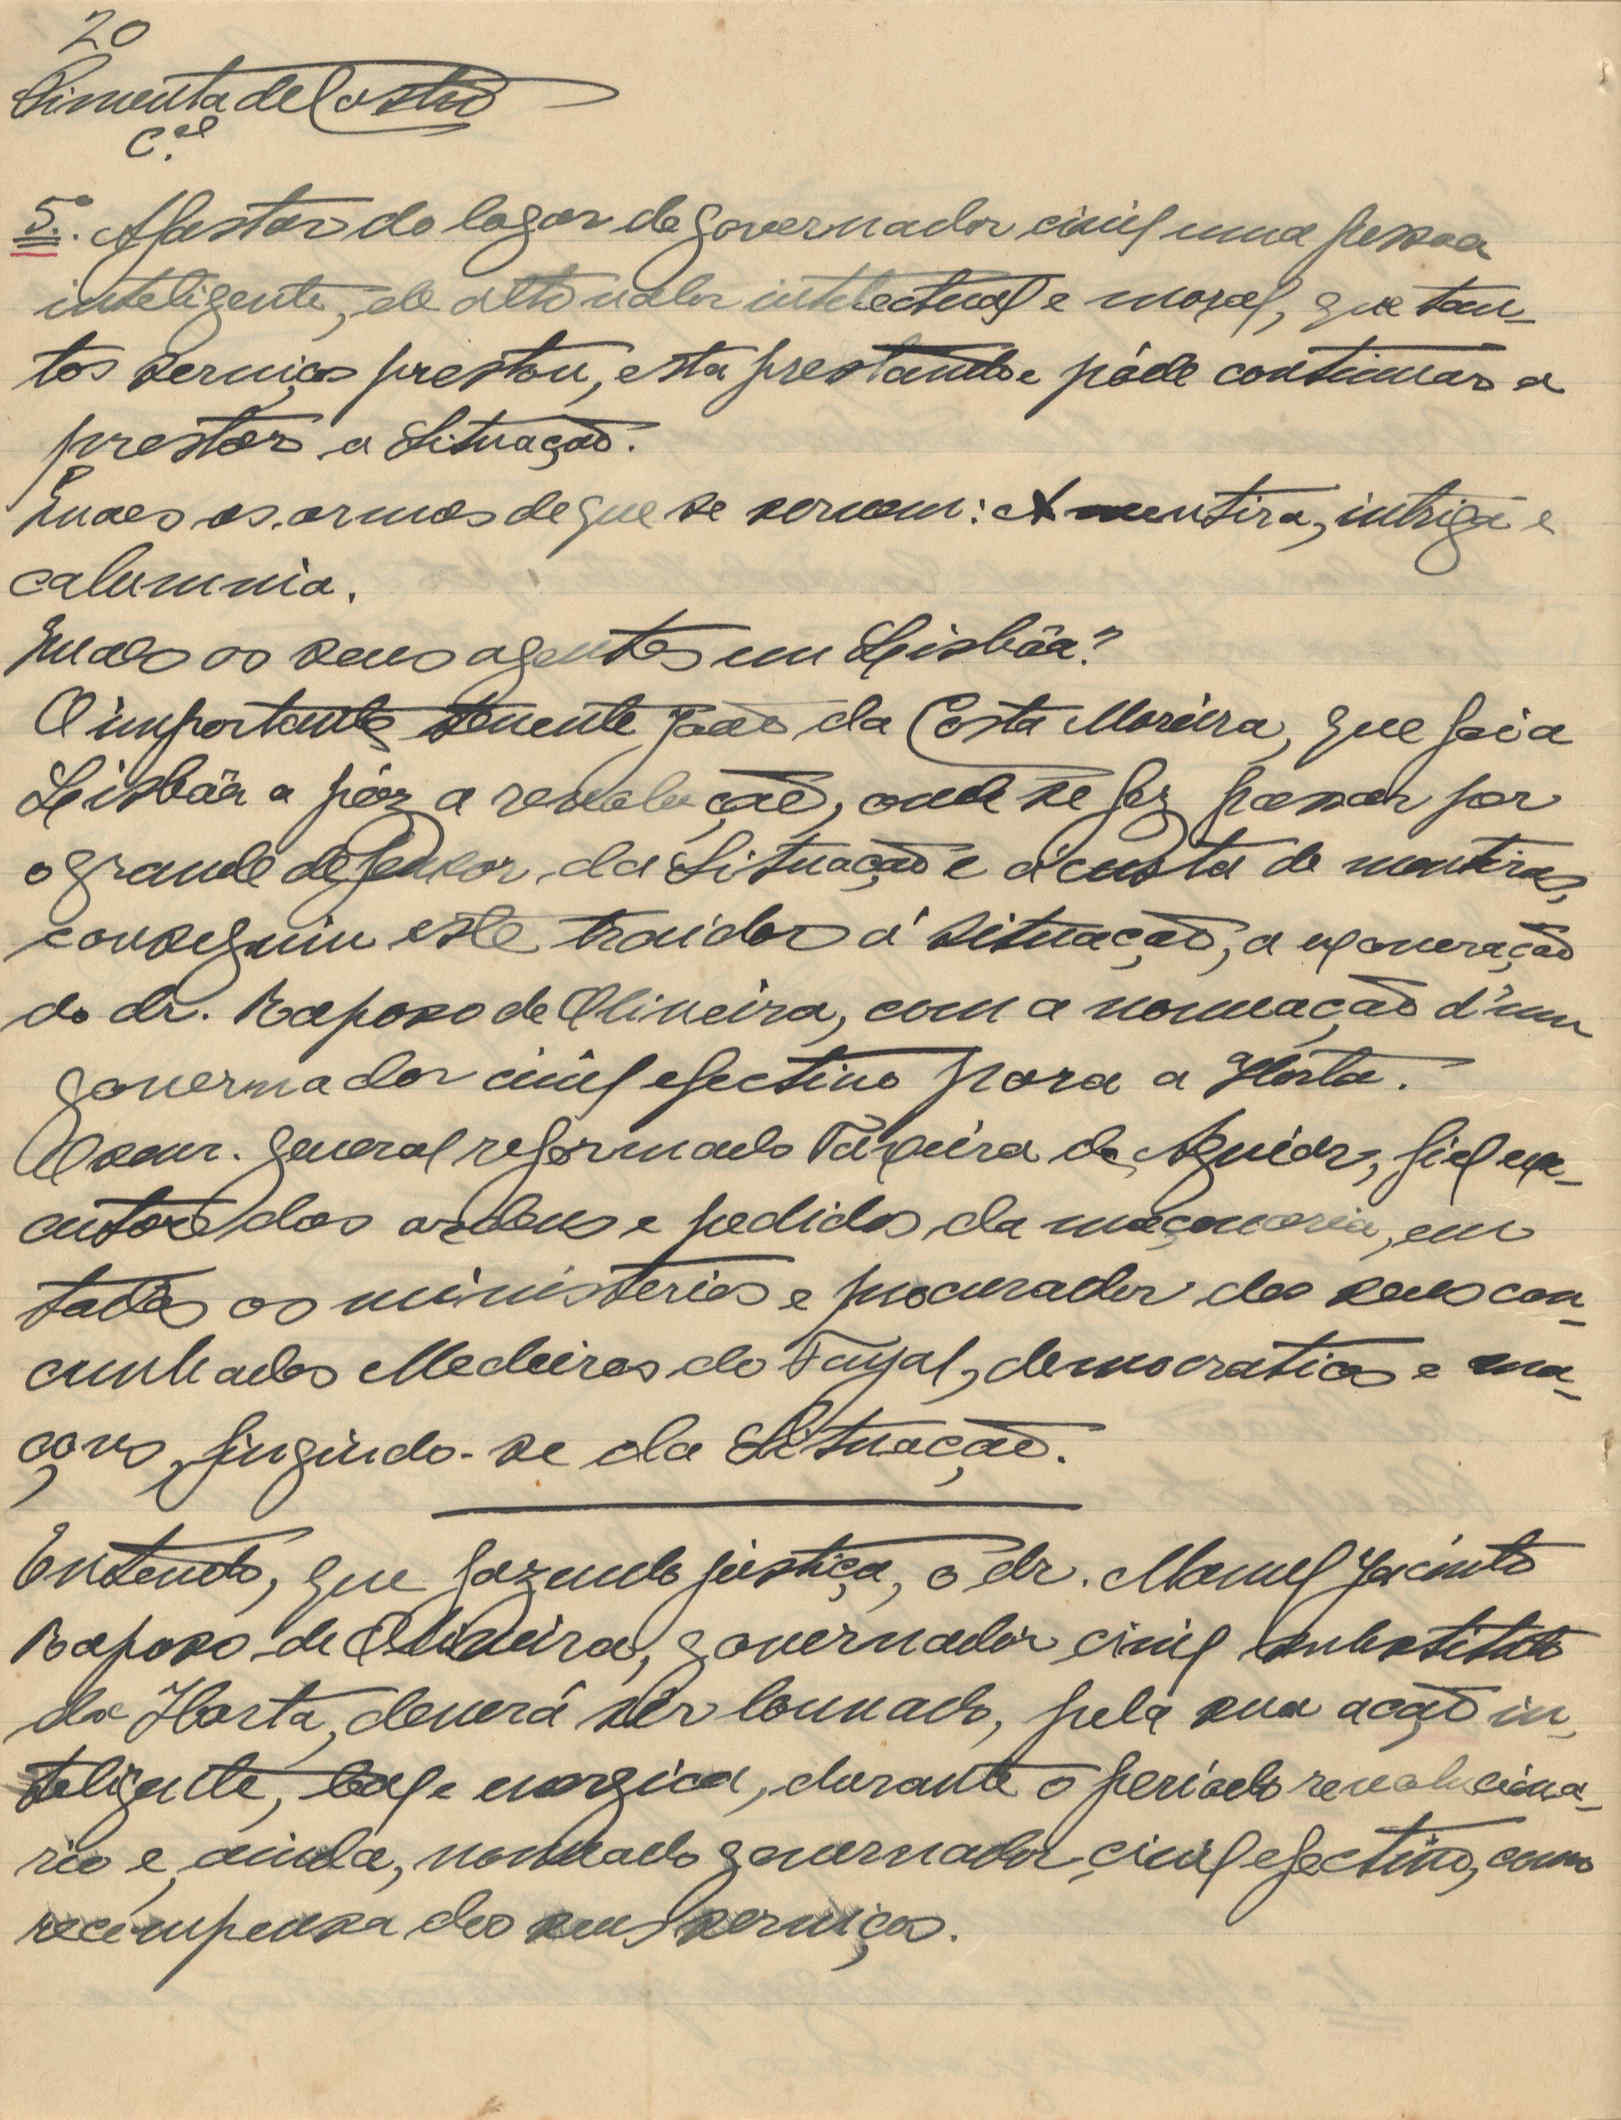 20
Pimenta de Castro
C.el
5º. Afastar do logar de governador civil uma pessoa
inteligente, de alto valor intelectual e moral, que tan-
tos serviços prestou, esta prestando e póde continuar a
prestar a Situação.
Quaes as armas de que se servem: A mentira, intriga e
calumnia.
Quaes os seus agentes em Lisbôa?
O importante tenente João da Costa Moreira, que foi a
Lisbôa a póz a revolução, onde se fez passar por
o grande defensor da Situação e á custa de mentiras,
conseguiu este traidor á situação, a exoneração
do dr. Raposo de Oliveira, com a nomeação d'um
governador civil efectivo para a Horta.
O senr. general reformado Teixeira de Aguiar, fiel exe-
cutor das ordens e pedidos da maçonaria, em
todos os ministerios e procurador dos seus con-
cunhados Medeiros do Fayal, democraticos e ma-
çons, fingindo-se da Situação.
Entendo, que fazendo justiça, o dr. Manuel Jacinto
Raposo de Oliveira, governador civil substituto
da Horta, deverá sêr louvado, pela sua acção in-
teligente, leal e energica, durante o periodo revoluciona-
rio e, ainda, nomeado governador civil efectivo, como
recompensa dos seus serviços.